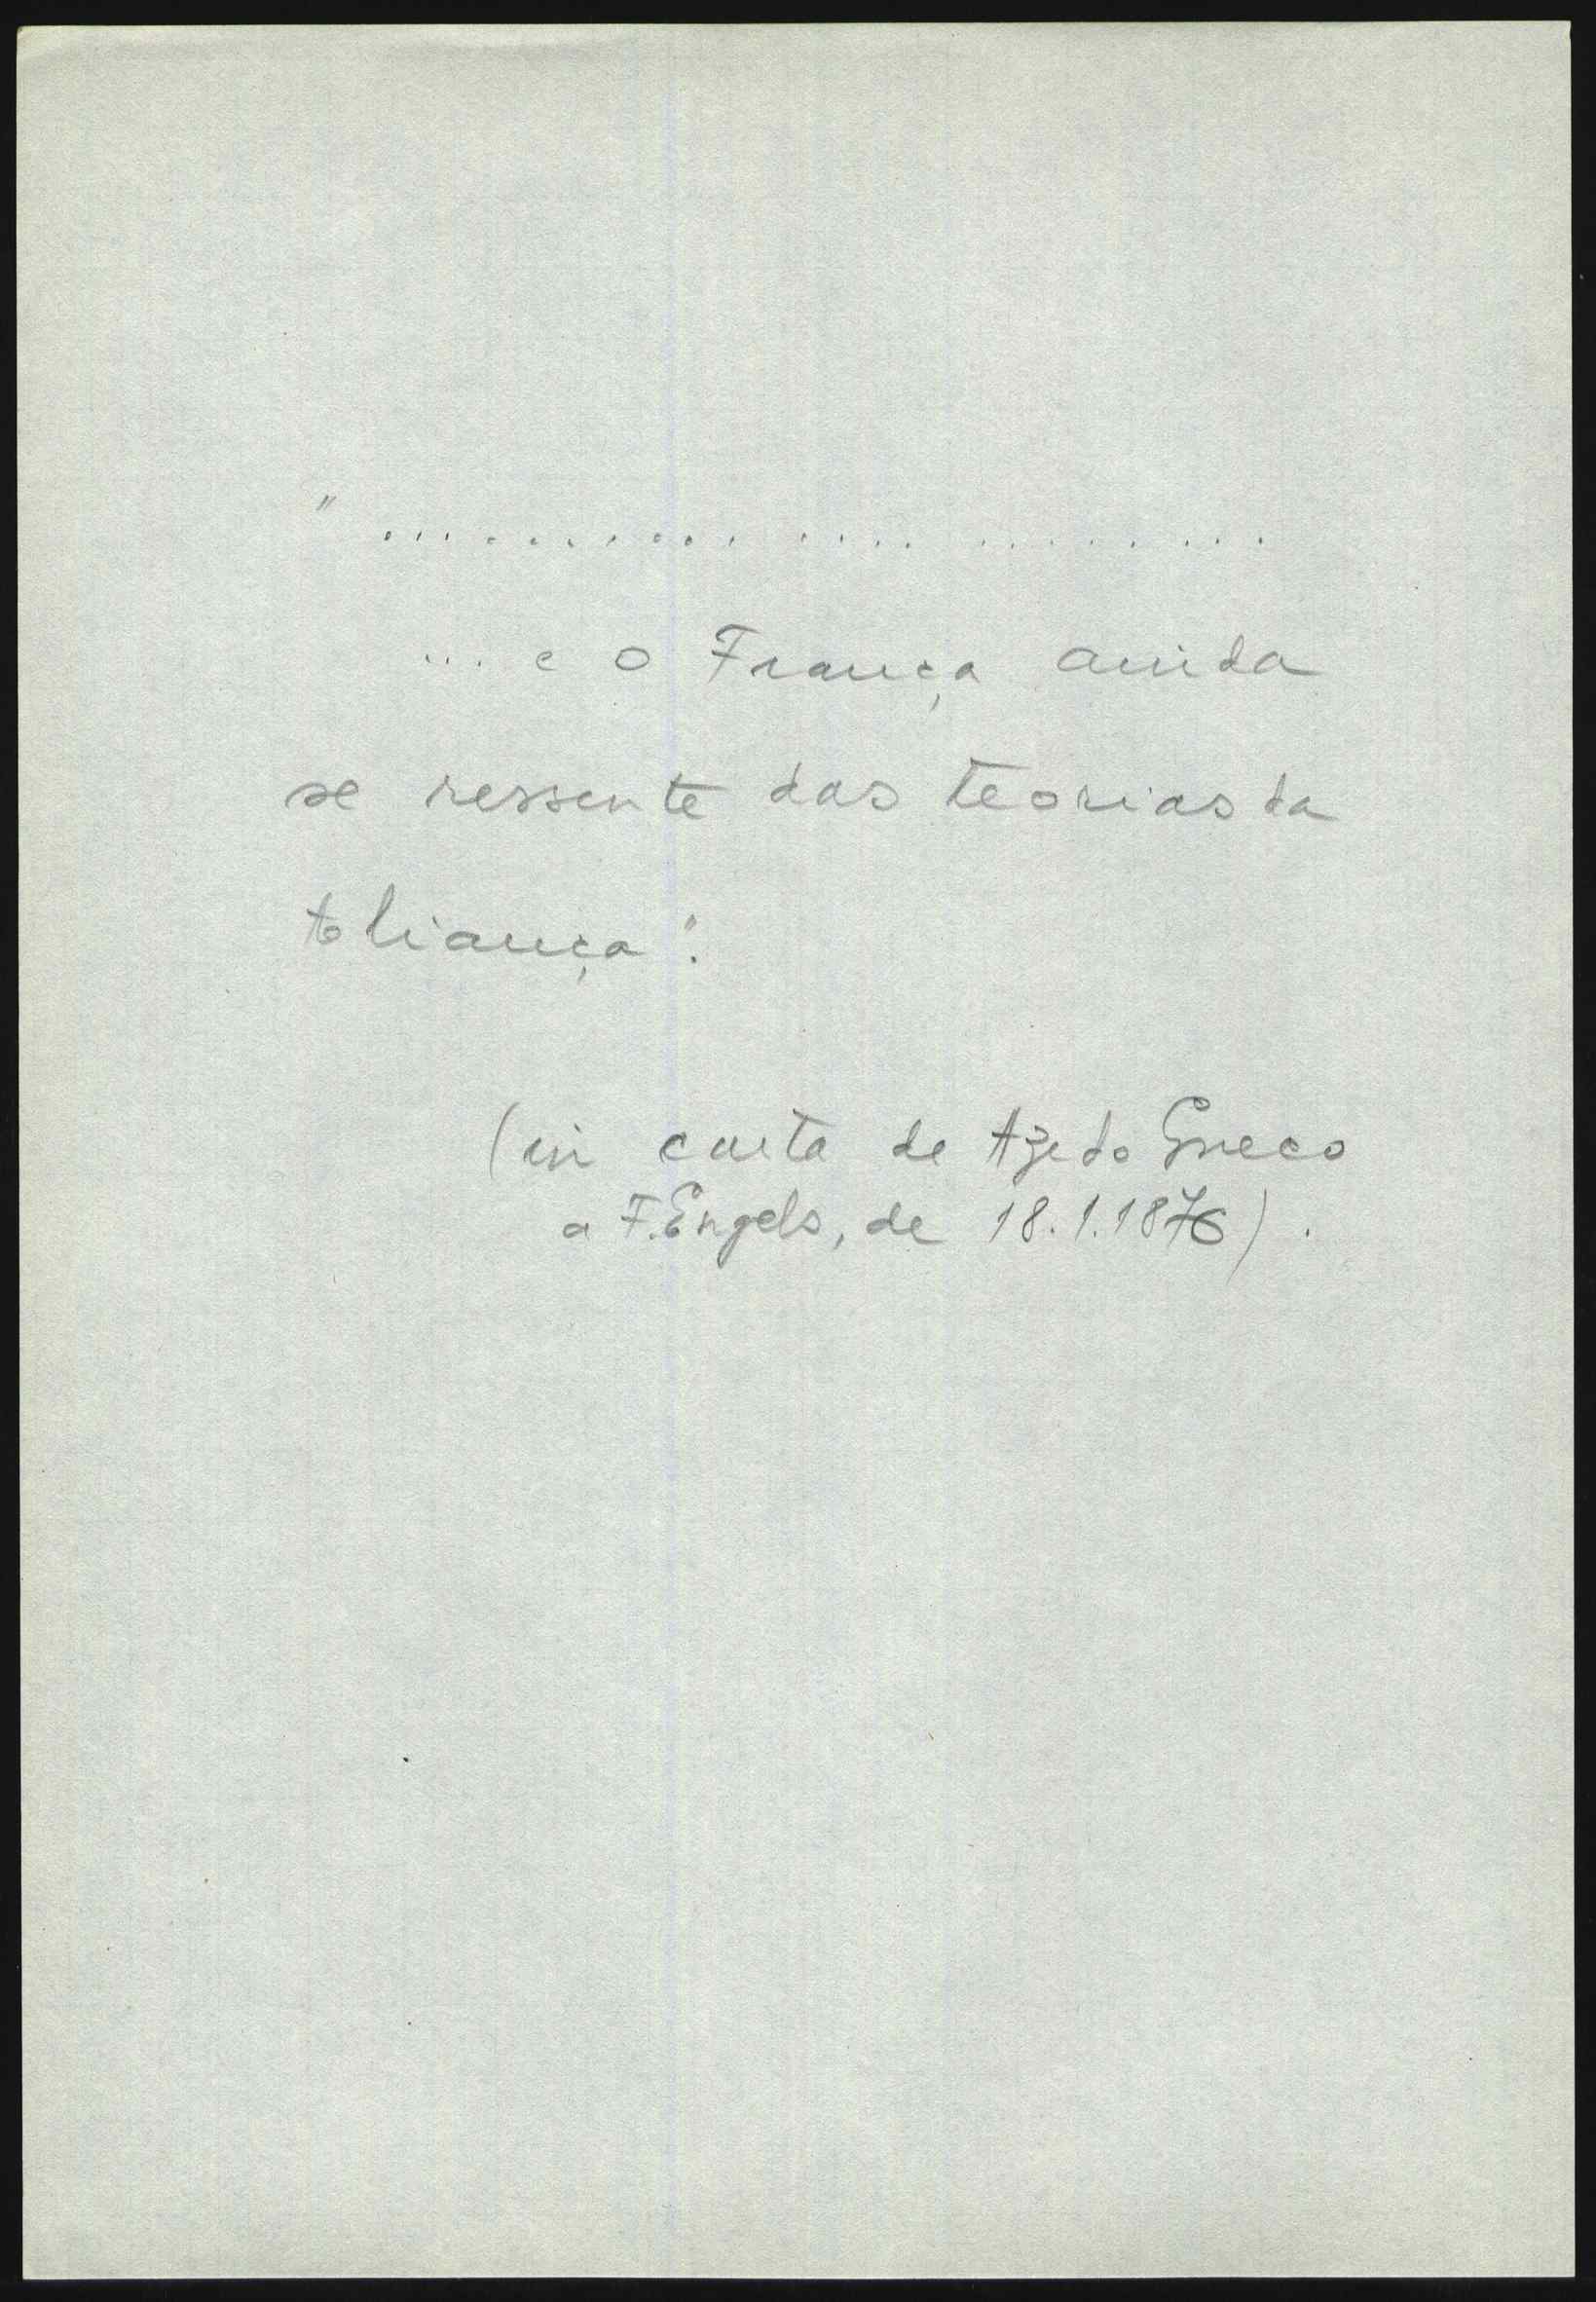 " ..............................
... e o França ainda
se ressente das teorias da
Aliança".
(in carta de Azedo Gneco
a F. Engels, de 18.1.1876).